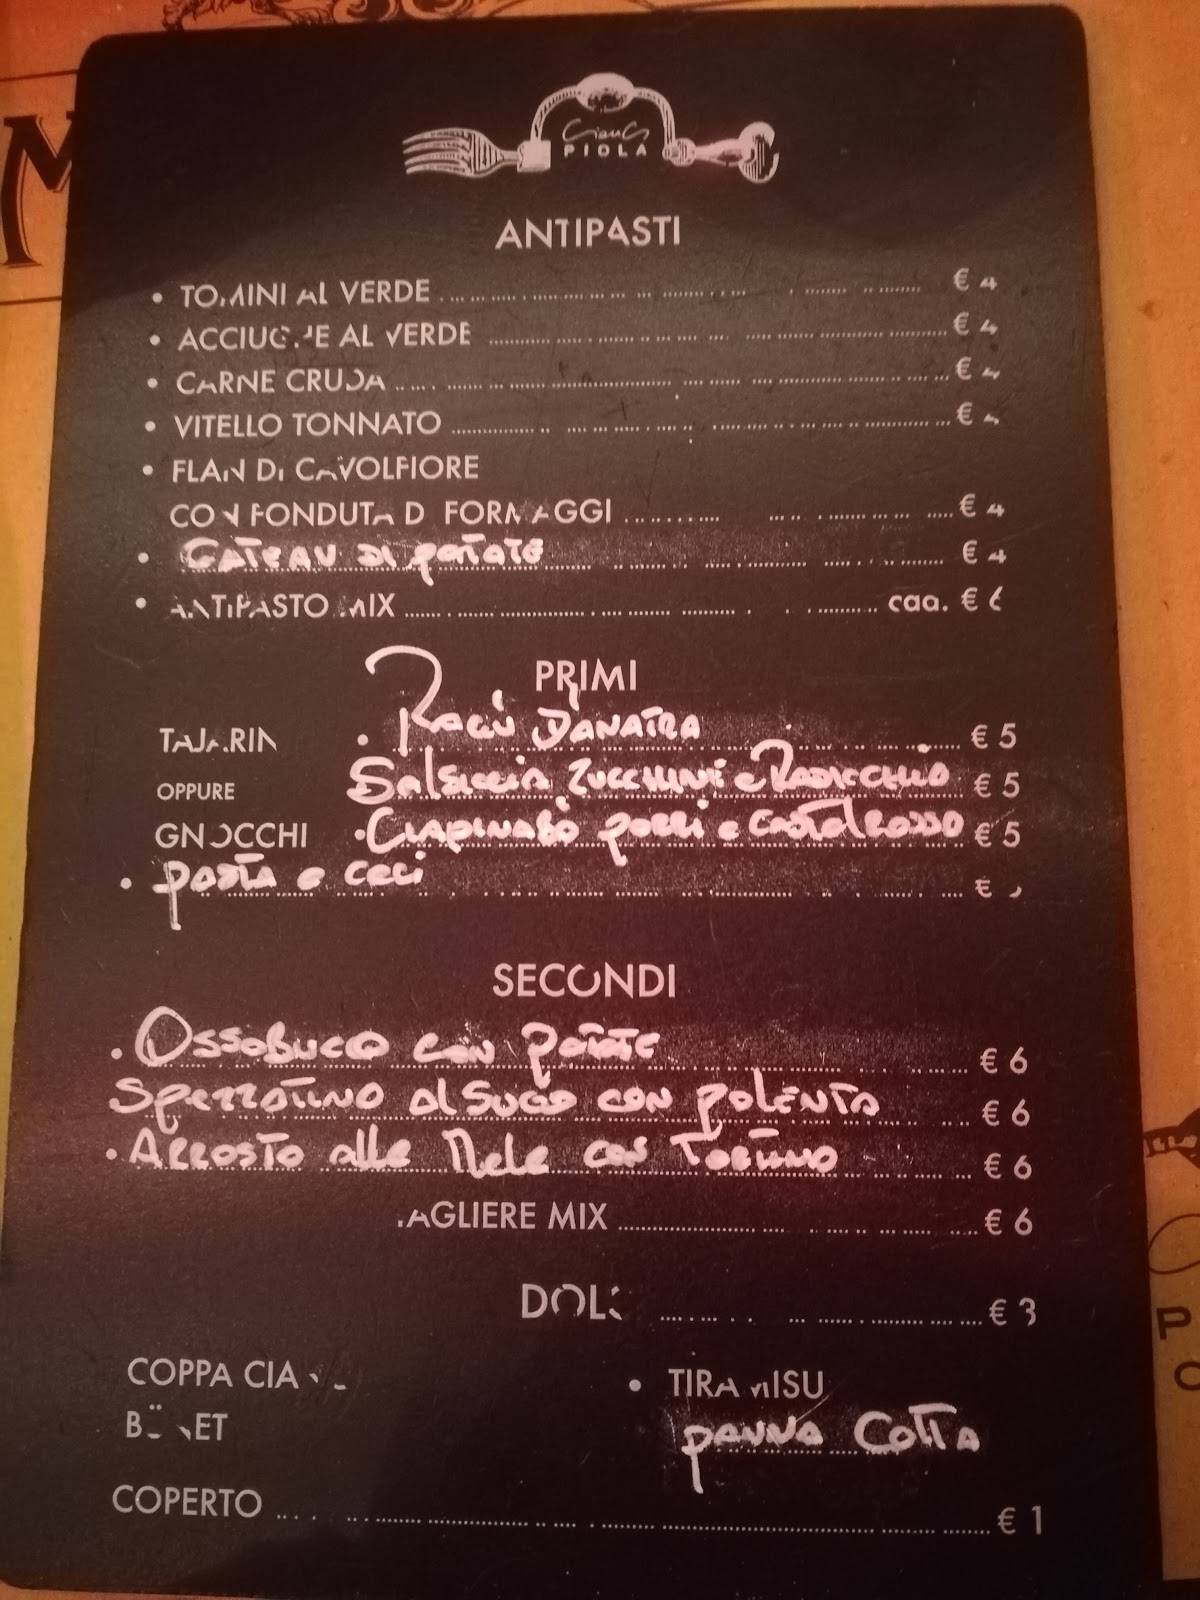 PIOLA
ANTIPASTI
• TOMINI AL VERDE € 4
• ACCIUGHE AL VERDE € 4
• CARNE CRUDA € 4
• VITELLO TONNATO € 4
• FLAN DI CAVOLFIORE
CON FONDUTA DI FORMAGGI € 4
• GATEAU DI PATATE € 4
• ANTIPASTO MIX cad. € 6
PRIMI
TAJARIN • RAGÙ D'ANATRA € 5
OPPURE Salsiccia, Zucchine e Radicchio € 5
GNOCCHI • porri e Castelrosso € 5
• pasta e ceci €
SECONDI
• Ossobuco con patate € 6
Spezzatino al sugo con polenta € 6
• Arrosto alle Mele con Tortino € 6
TAGLIERE MIX € 6
DOLCI € 3
COPPA • TIRAMISU
BÜNET panna cotta
COPERTO € 1